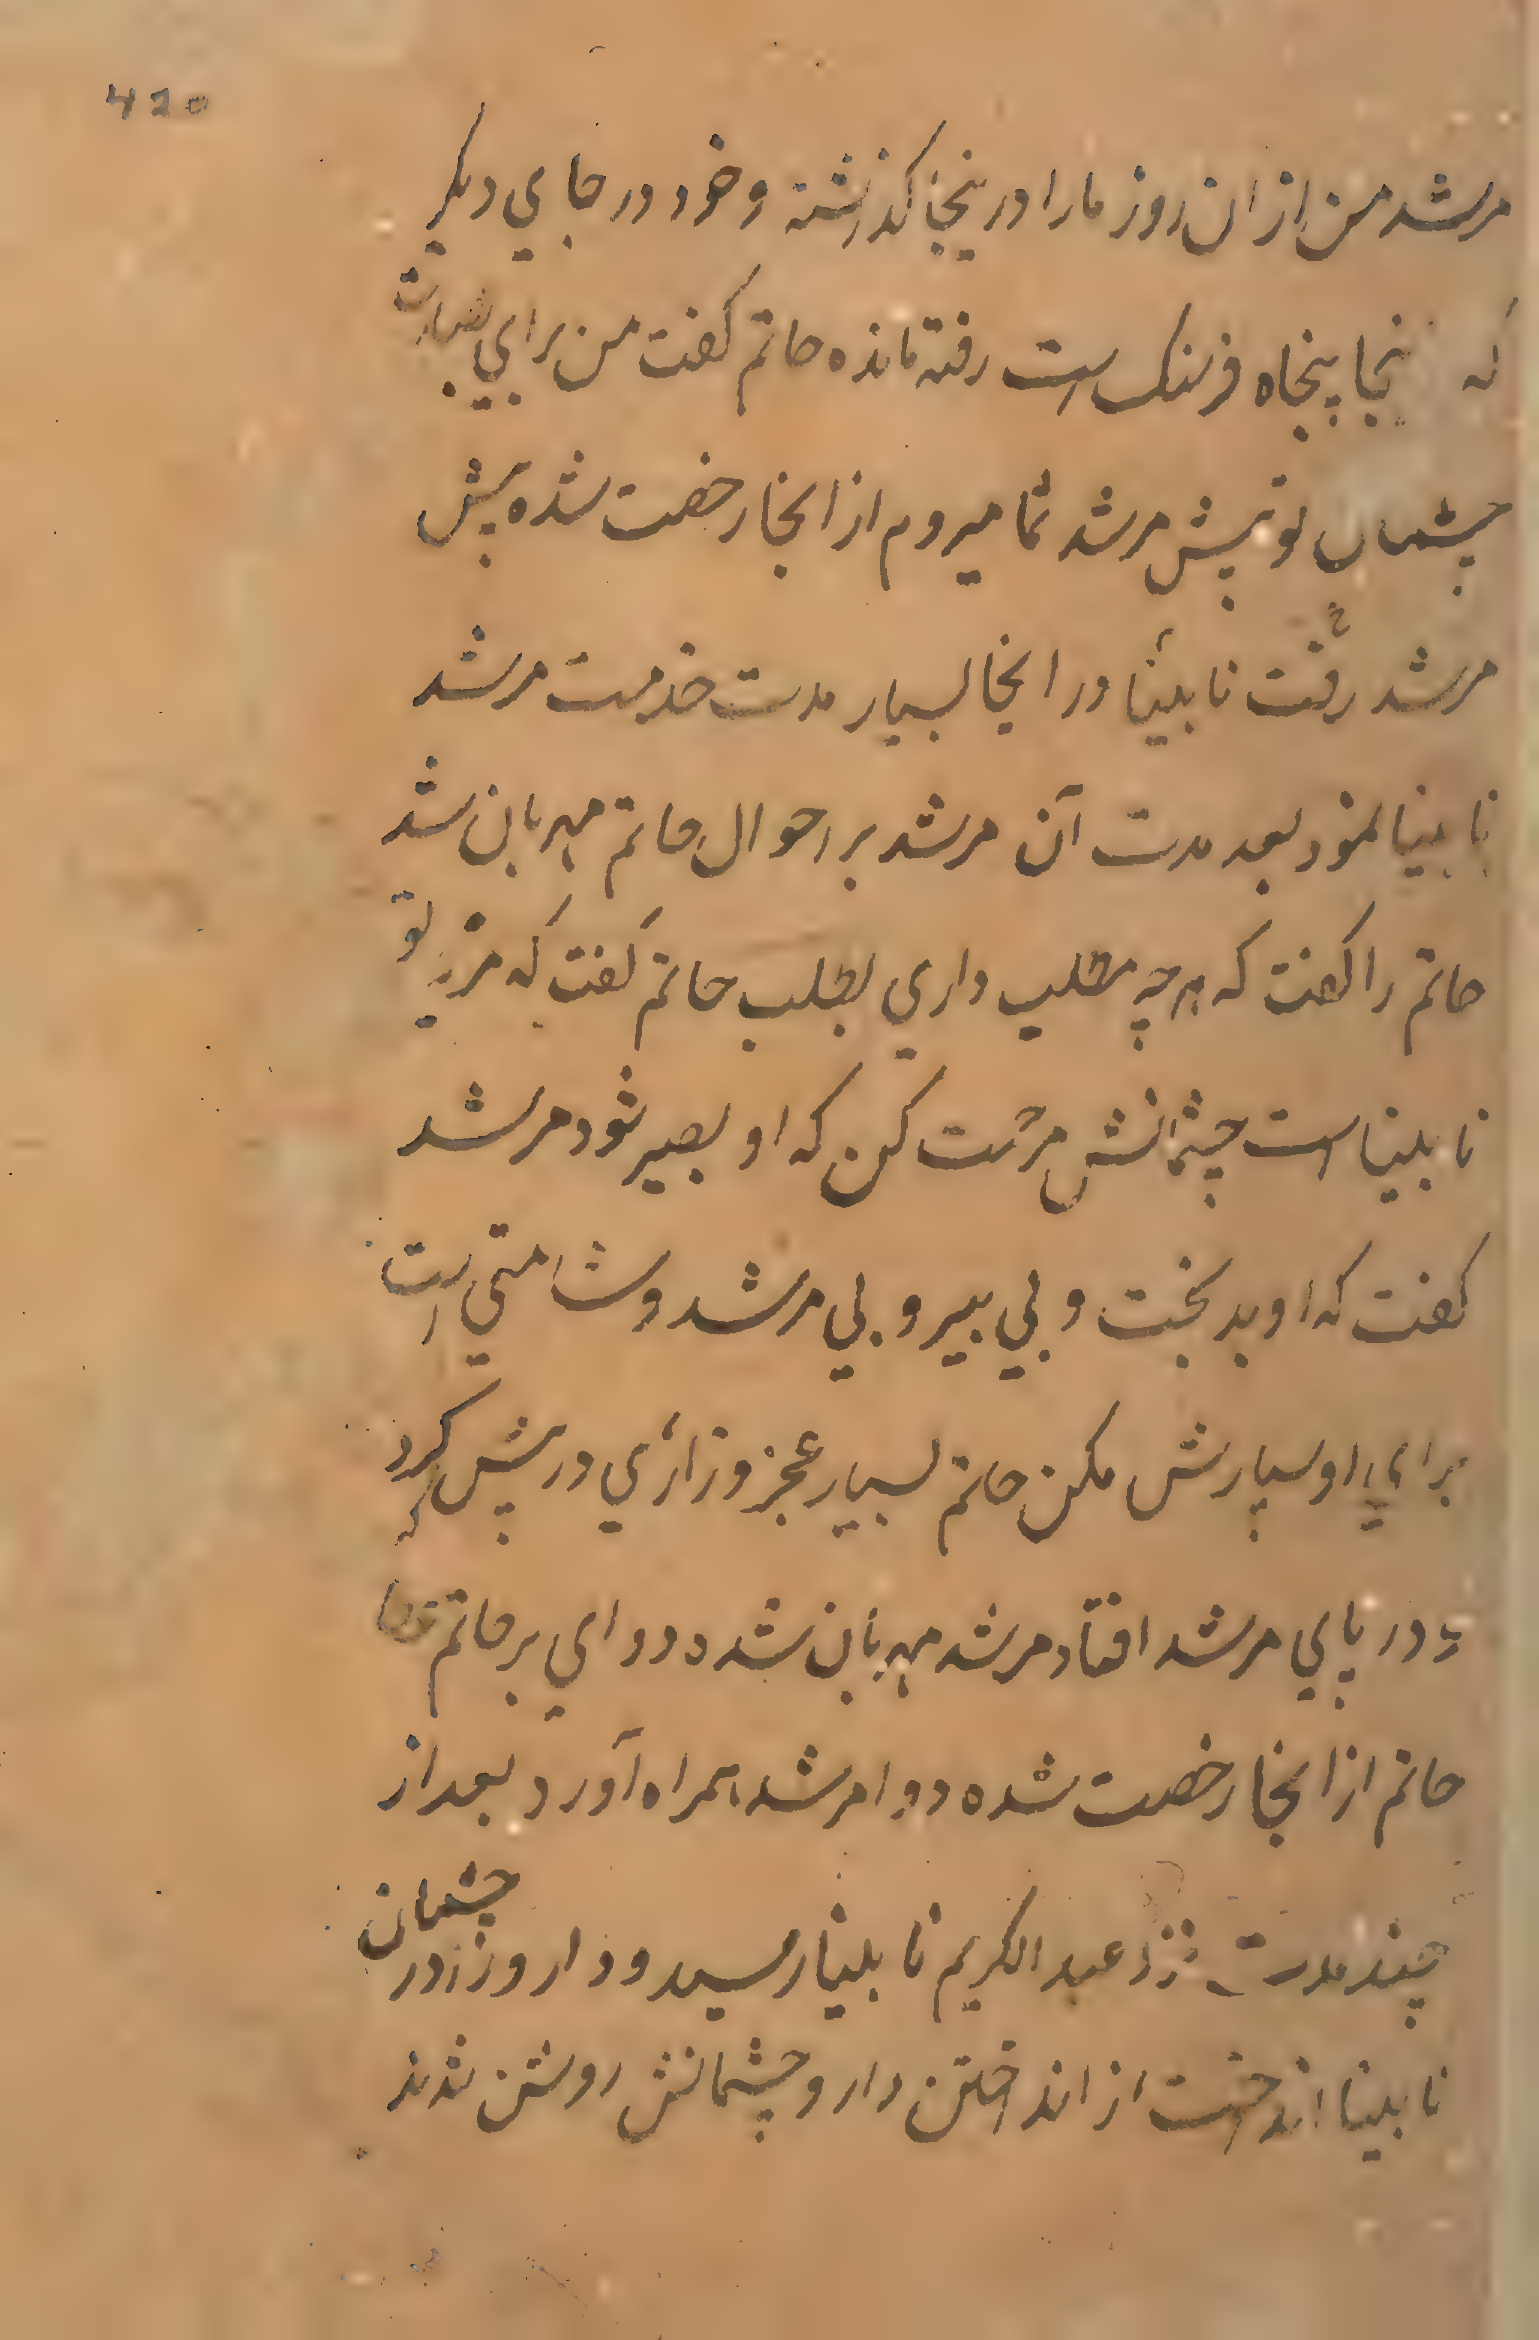 420
مرشد من از ان روز مارا درینجا کذاشته و خود در جاي دیکر
که نجا پنجاه فرنسک است رفته مانده حاتم کفت من براي بصارت
چشمان تو پیش مرشد شما میروم از انجا رخصت شده پیش
مرشد رفت نابینا در انجا بسیار مدت خدمت مرشد
نابینا نمود بعد مدت آن مرشد بر احوال حاتم مهربان شد
حاتم را کفت که هر چه مطلب داري بطلب حاتم کفت که مرید تو
نابینا است چشمانش مرحمت کن که او بصیر شود مرشد
کفت که او بدبخت و بي پیر و بي مرشد و شامتي است
براي او سپارش مکن حاتم بسیار عجز و زاري در پیش کرد
که
در پاي مرشد افتاد مرشد مهربان شده دواي بر حاتم
حاتم از انجا رخصت شده دوا مرشد همراه آورد بعد از
چند مدت نزد عبد الکریم نابینا رسید و دارو زدر چشمان
نابینا انداخت از انداختن دارو چشمانش روشن شدند